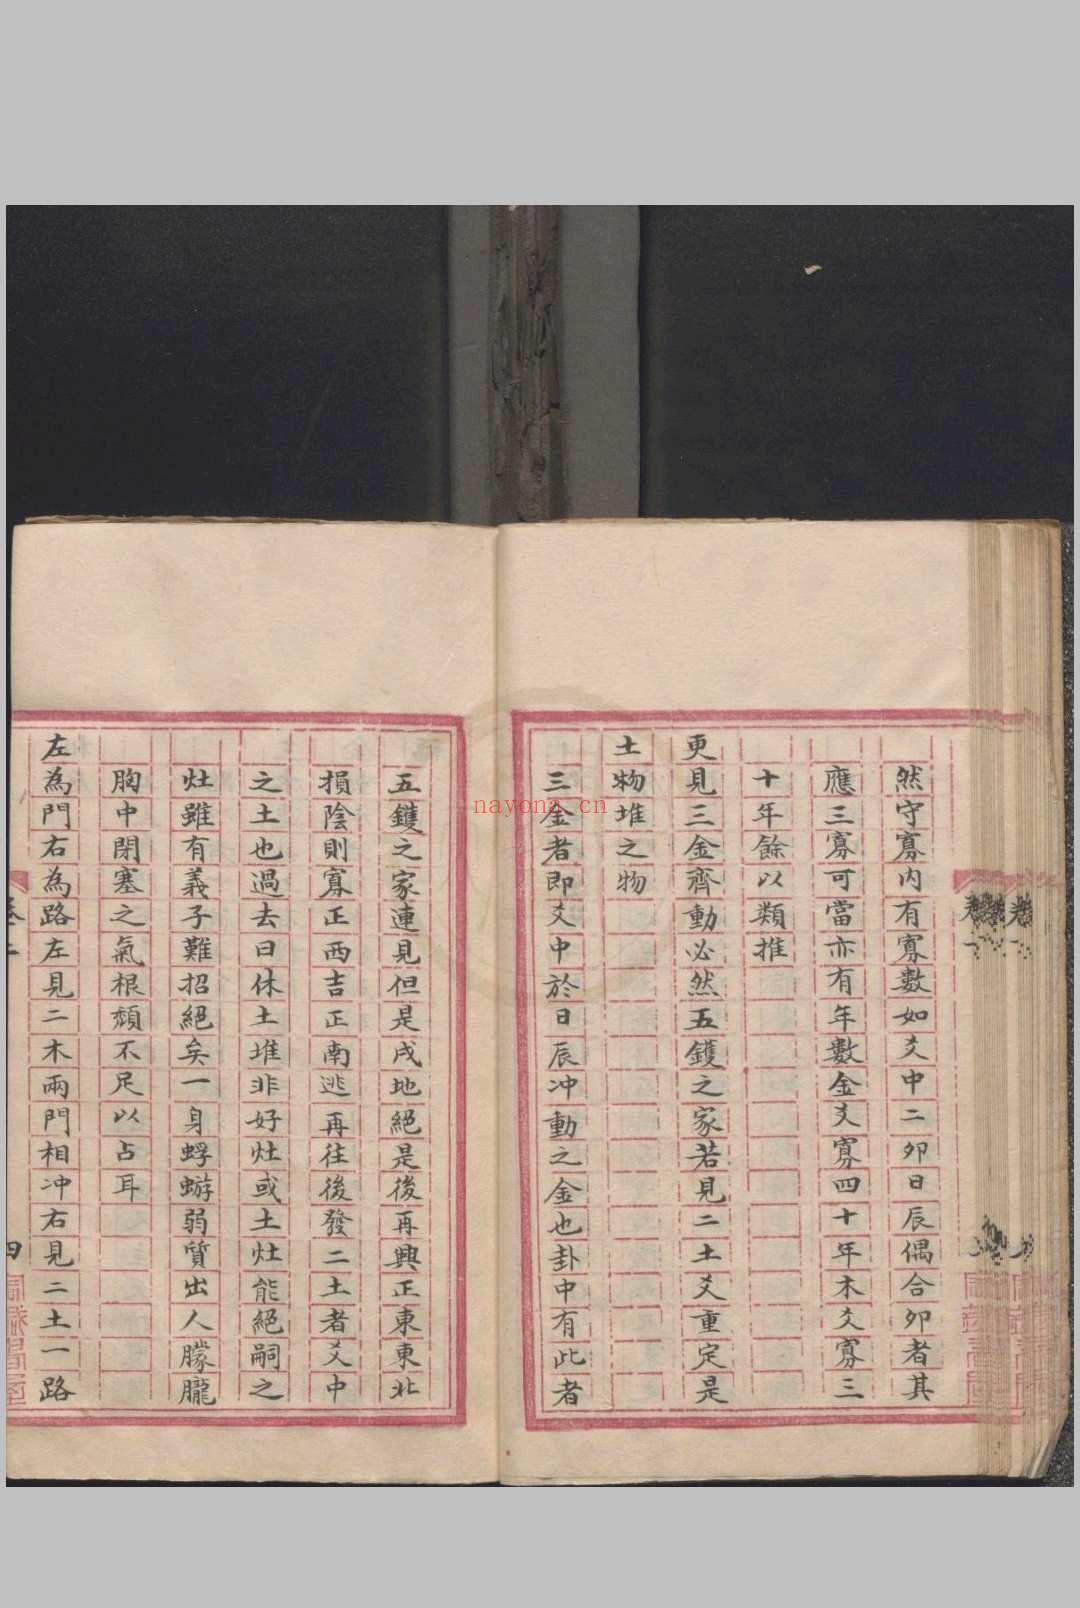 然守寡内有寡數如爻中二卯日辰偶合卯者其
應三寡可當亦有年數金爻寡四十年木爻寡三
十年餘以類推
更見三金齊動必然五鑊之家若見二土爻重定是
土物堆之物
三金者即爻中於日辰冲動之金也卦中有此者
五鑊之家連見但是戌地絕是後再興正東東北
損陰則寡正西吉正南逃再往後發二土者爻中
之土也過去曰休土堆非好灶或土灶能絕嗣之
灶雖有義子難招絕矣一身蜉蝣弱質出人朦朧
胸中閉塞之氣根頹不足以占耳
左為門右為路左見二木兩門相冲右見二土一路
四
nayona.cn